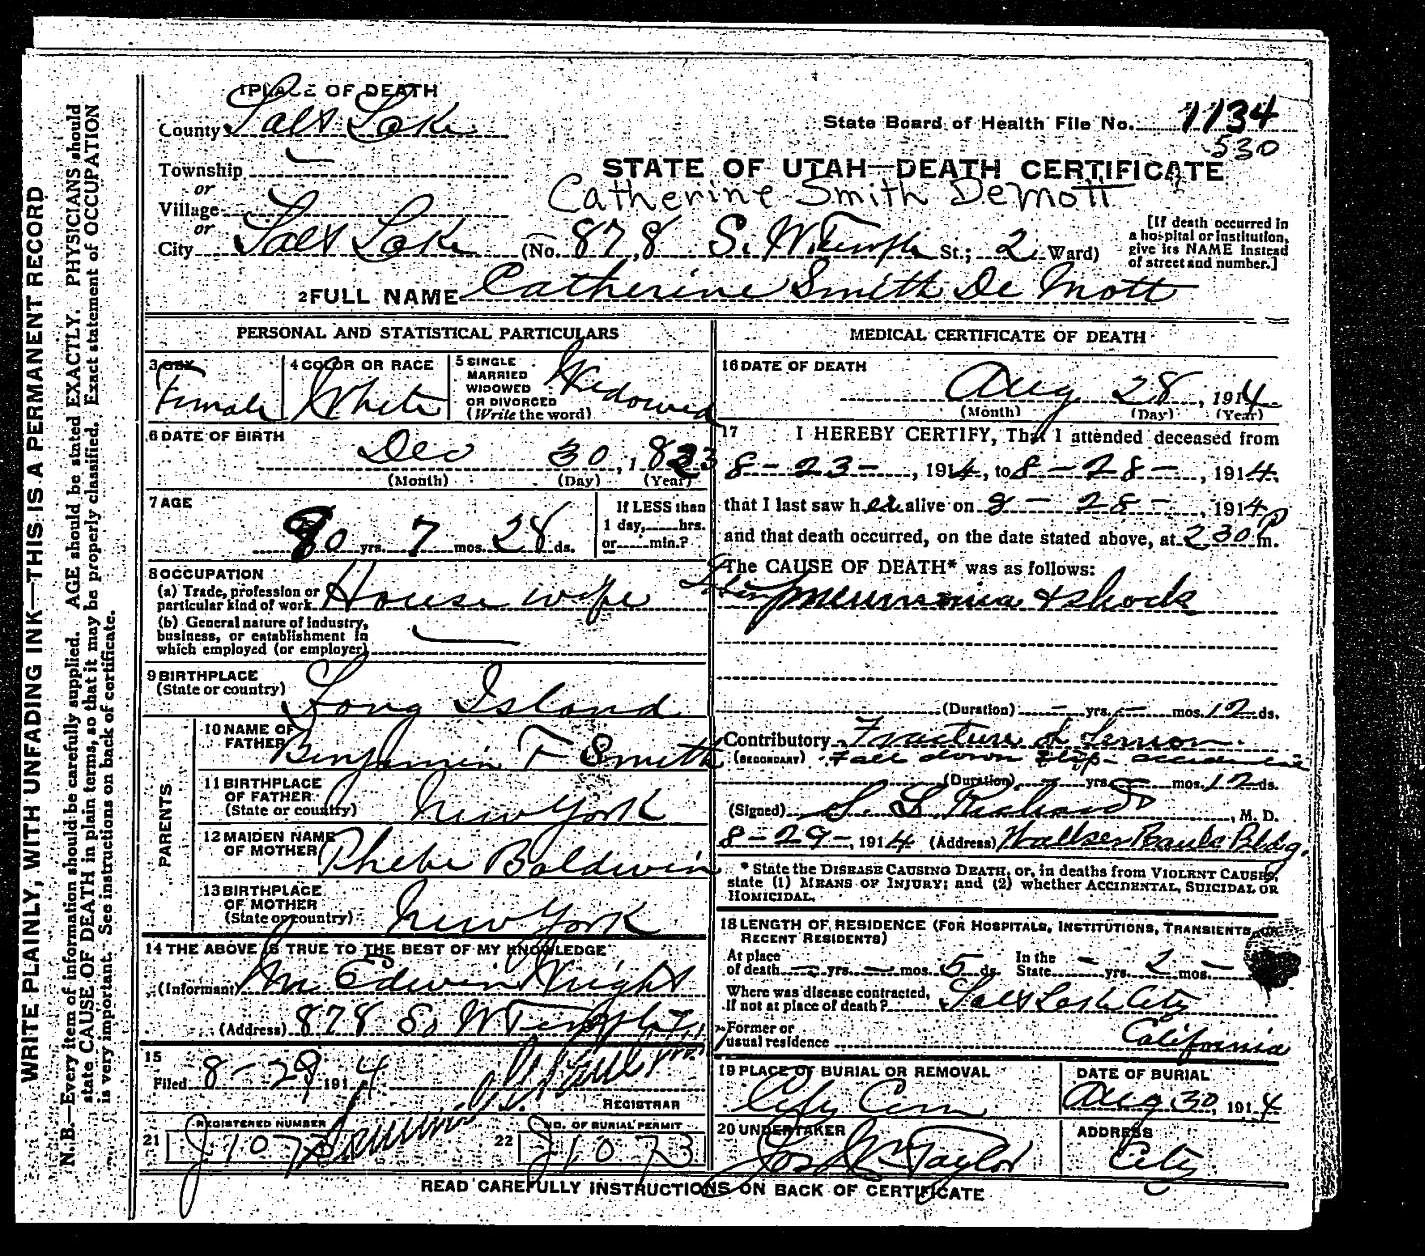 WRITE PLAINLY, WITH UNFADING INK—THIS IS A PERMANENT RECORD
N.B.—Every item of information should be carefully supplied. AGE should be stated EXACTLY. PHYSICIANS should
state CAUSE OF DEATH in plain terms, so that it may be properly classified. Exact statement of OCCUPATION
is very important. See instructions on back of certificate.
1 PLACE OF DEATH
County Salt Lake
State Board of Health File No. 1134
530
Township —
or
Village
or
STATE OF UTAH—DEATH CERTIFICATE
Catherine Smith Demott
City Salt Lake (No. 878 S. W. Temple St.; 2 Ward)
[If death occurred in
a hospital or institution,
give its NAME instead
of street and number.]
2 FULL NAME Catherine Smith De Mott
PERSONAL AND STATISTICAL PARTICULARS
3 SEX
Female
4 COLOR OR RACE
White
5 SINGLE
MARRIED
WIDOWED
OR DIVORCED
(Write the word)
Widowed
6 DATE OF BIRTH
Dec 30, 1833
(Month) (Day) (Year)
7 AGE
80 yrs. 7 mos. 28 ds.
If LESS than
1 day, hrs.
or min.?
8 OCCUPATION
(a) Trade, profession or
particular kind of work
House wife
(b) General nature of industry,
business, or establishment in
which employed (or employer)
—
9 BIRTHPLACE
(State or country)
Long Island
PARENTS
10 NAME OF
FATHER
Benjamin F Smith
11 BIRTHPLACE
OF FATHER
(State or country)
New York
12 MAIDEN NAME
OF MOTHER
Phebe Baldwin
13 BIRTHPLACE
OF MOTHER
(State or country)
New York
14 THE ABOVE IS TRUE TO THE BEST OF MY KNOWLEDGE
(Informant) Edwin Knight
(Address) 878 So W Temple
15
Filed 8-29 1914
REGISTRAR
REGISTERED NUMBER
21 J1073
NO. OF BURIAL PERMIT
22 J1073
MEDICAL CERTIFICATE OF DEATH
16 DATE OF DEATH
Aug 28, 1914
(Month) (Day) (Year)
17 I HEREBY CERTIFY, That I attended deceased from
8-23-, 1914, to 8-28-, 1914
that I last saw her alive on 8-28-, 1914
and that death occurred, on the date stated above, at 230 P m.
The CAUSE OF DEATH* was as follows:
pneumonia & shock
(Duration) – yrs. – mos. 12 ds.
Contributory Fracture of femur
(SECONDARY) Fall down step - accidental
(Duration) – yrs. – mos. 12 ds.
(Signed) S. L. Richards, M. D.
8-29-, 1914 (Address) Walker Bank Bldg.
* State the DISEASE CAUSING DEATH, or, in deaths from VIOLENT CAUSES,
state (1) MEANS OF INJURY; and (2) whether ACCIDENTAL, SUICIDAL OR
HOMICIDAL.
18 LENGTH OF RESIDENCE (FOR HOSPITALS, INSTITUTIONS, TRANSIENTS, OR
RECENT RESIDENTS)
At place
of death – yrs. – mos. 5 ds.
In the
State – yrs. 2 mos. –
Where was disease contracted,
if not at place of death? Salt Lake City
Former or
usual residence California
19 PLACE OF BURIAL OR REMOVAL
City Cem
DATE OF BURIAL
Aug 30, 1914
20 UNDERTAKER
Jos. Taylor
ADDRESS
City
READ CAREFULLY INSTRUCTIONS ON BACK OF CERTIFICATE